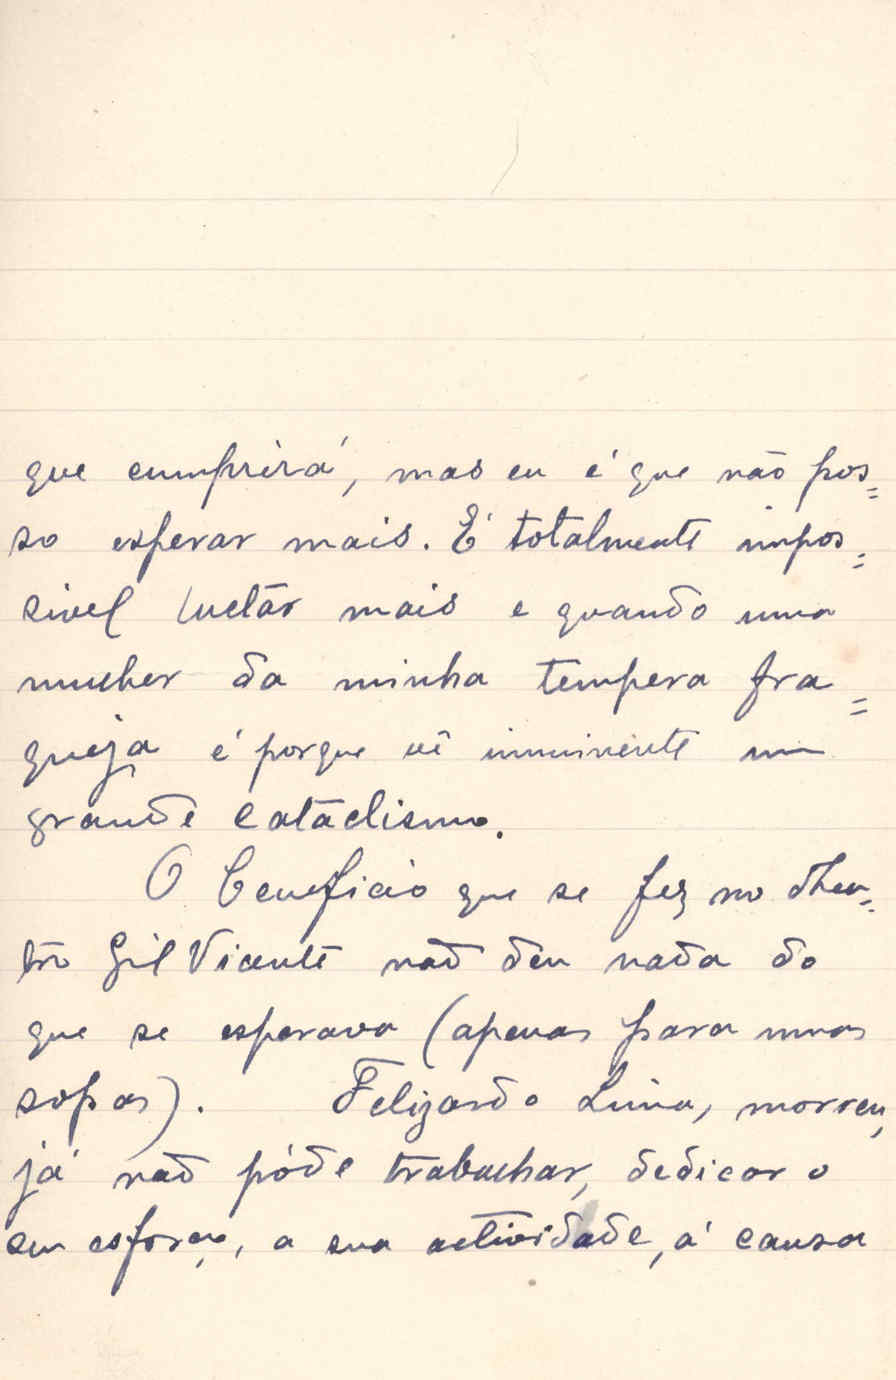 que cumprirá, mas eu é que não pos=
so esperar mais. É totalmente impos=
sivel luctar mais e quando uma
mulher da minha tempera fra=
queja é porque vê imminente um
grande cataclismo.
O beneficio que se fez no Thea=
tro Gil Vicente não deu nada do
que se esperava (apenas para umas
sopas). Felizardo Lima, morreu,
já não póde trabalhar, dedicar o
seu esforço, a sua actividade, á causa